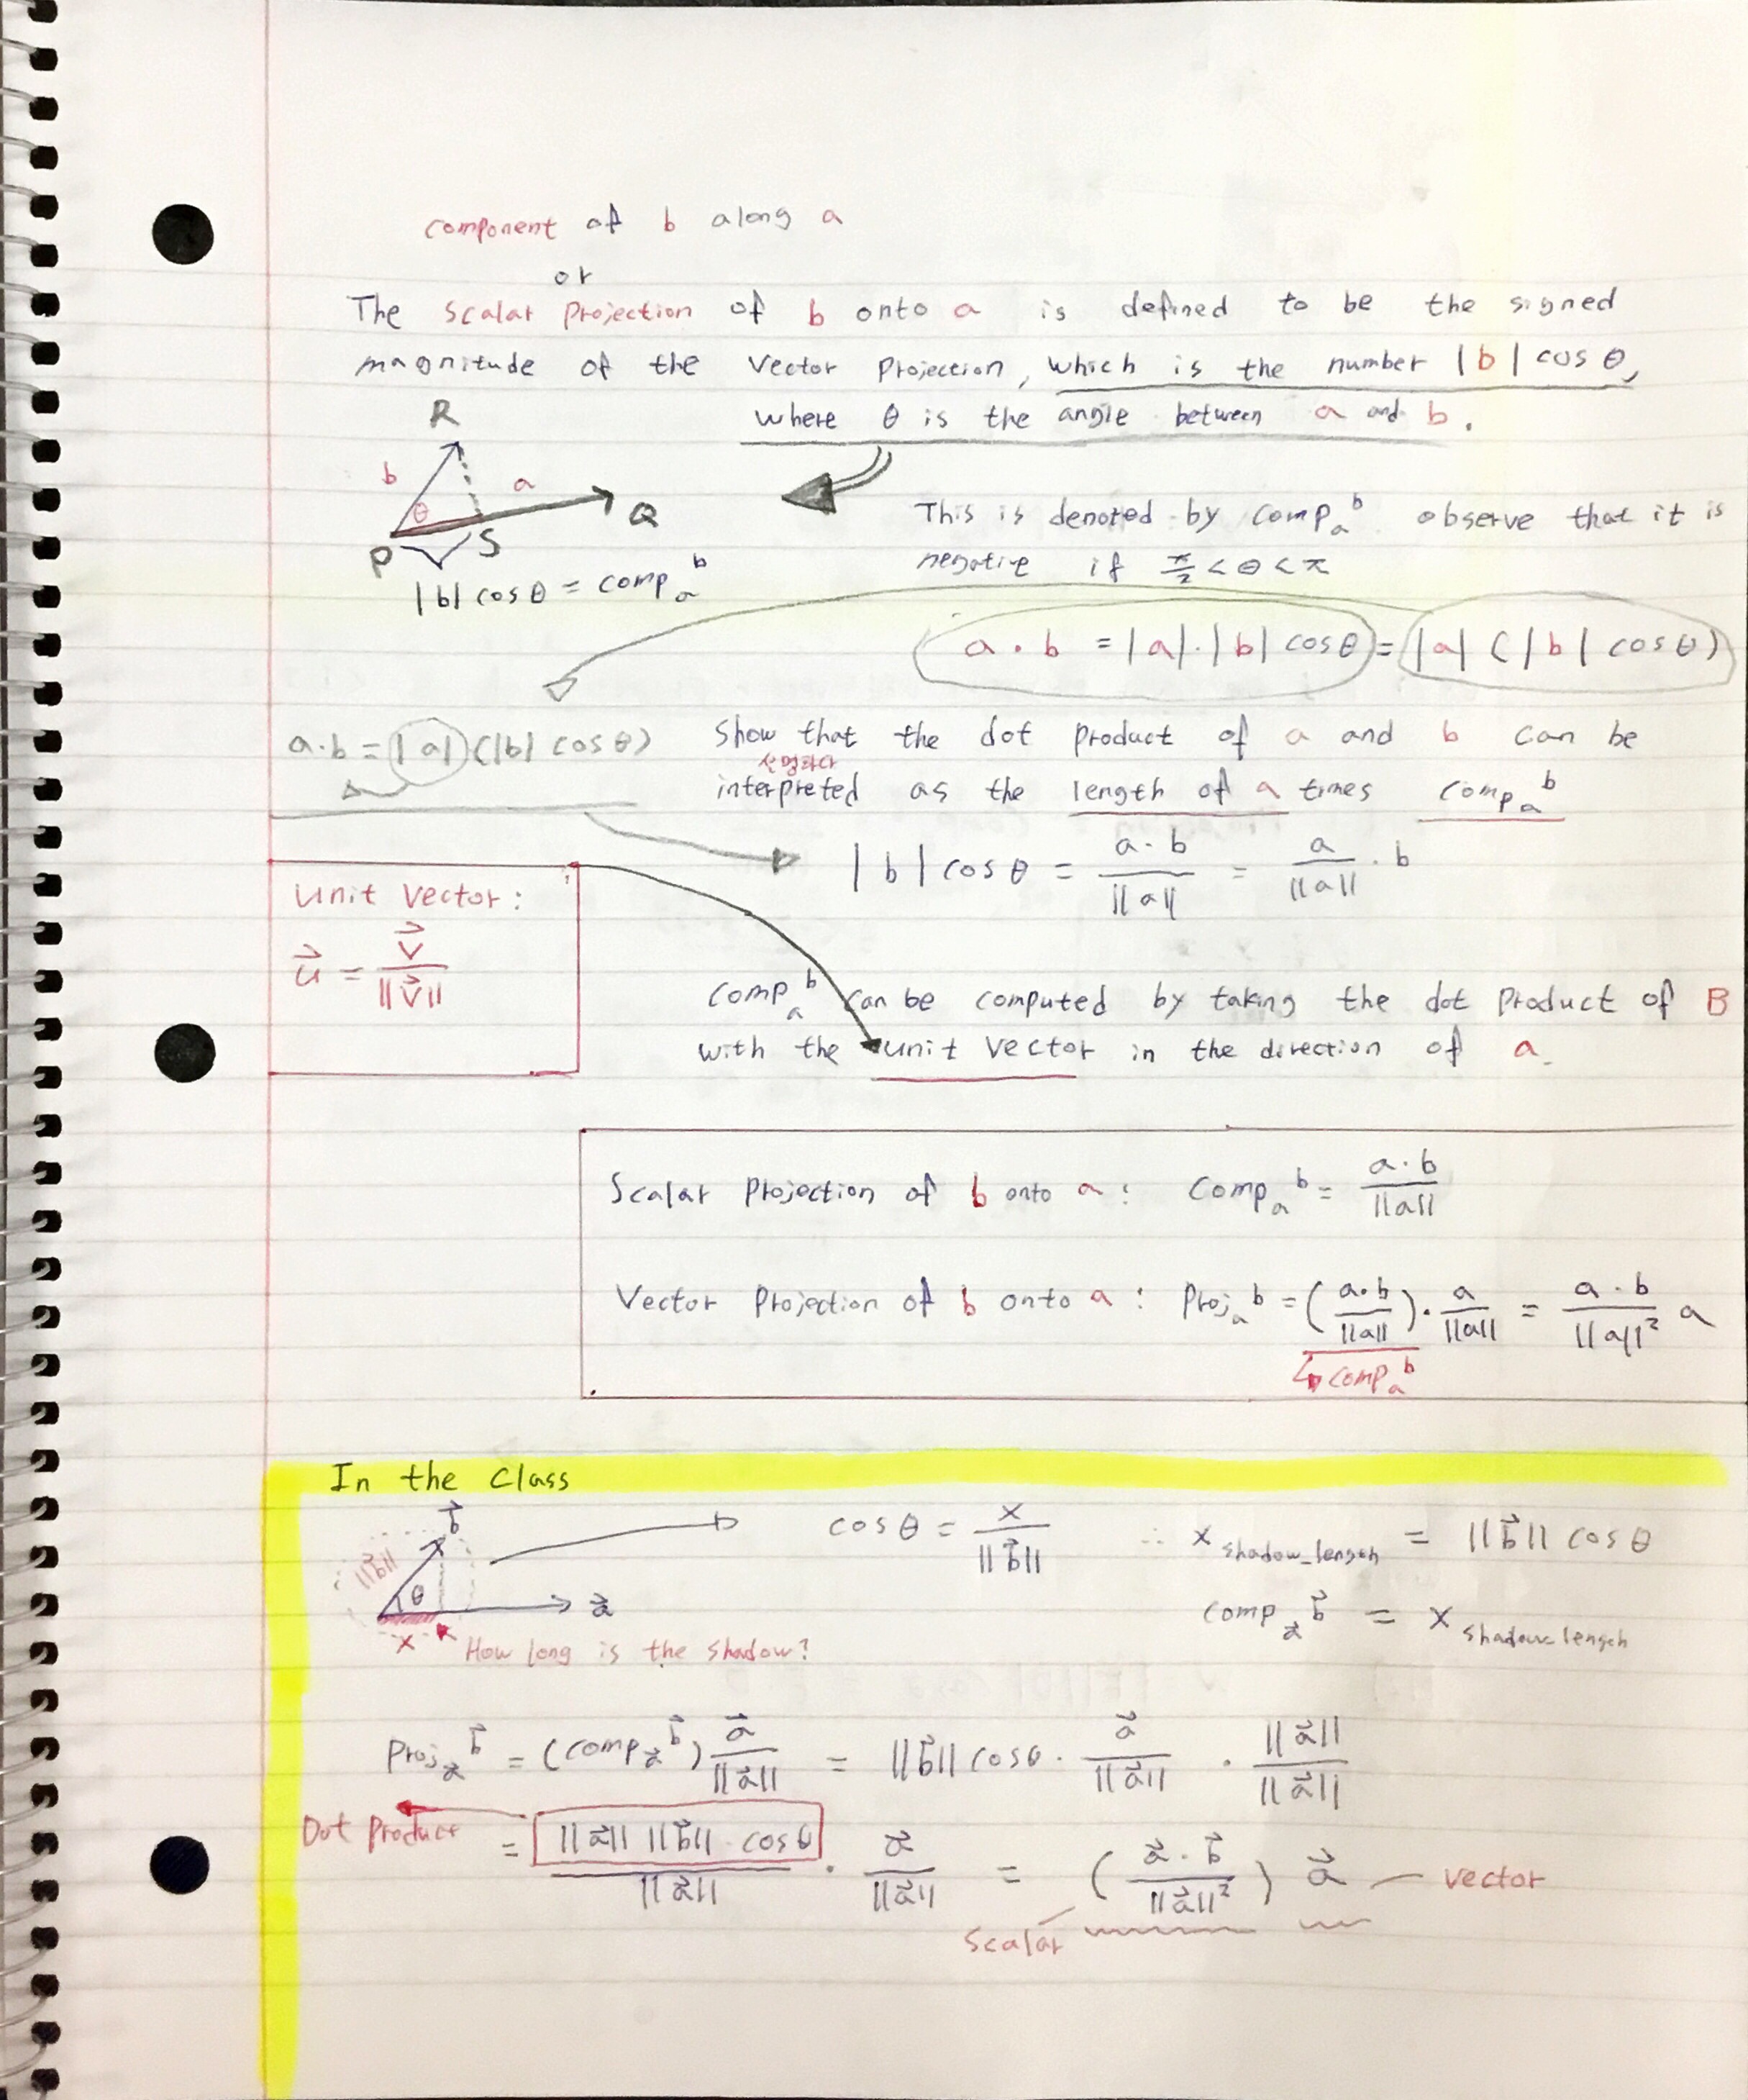 component of b along a
or
The scalar projection of b onto a is defined to be the signed
magnitude of the vector projection, which is the number |b| cos θ,
where θ is the angle between a and b.
R
b
a
θ
Q
P
S
|b| cos θ = comp_a b
This is denoted by comp_a b observe that it is
negative if π/2 < θ < π
a · b = |a| · |b| cos θ = |a| (|b| cos θ)
a·b = |a| (|b| cos θ)
Show that the dot product of a and b can be
interpreted as the length of a times comp_a b
|b| cos θ = a · b / ||a|| = a / ||a|| · b
unit vector:
u⃗ = v⃗ / ||v⃗||
comp_a b can be computed by taking the dot product of B
with the unit vector in the direction of a.
Scalar projection of b onto a : Comp_a b = a · b / ||a||
Vector projection of b onto a : Proj_a b = (a·b / ||a||) · a / ||a|| = a · b / ||a||² a
comp_a b
In the class
b⃗
||b⃗||
θ
a⃗
x
How long is the shadow?
cos θ = x / ||b⃗|| ∴ x shadow_length = ||b⃗|| cos θ
comp_a⃗ b⃗ = x shadow_length
Proj_a⃗ b⃗ = (comp_a⃗ b⃗) a⃗ / ||a⃗|| = ||b⃗|| cos θ · a⃗ / ||a⃗|| · ||a⃗|| / ||a⃗||
Dot product
= ||a⃗|| ||b⃗|| · cos θ / ||a⃗|| · a⃗ / ||a⃗|| = (a⃗ · b⃗ / ||a⃗||²) a⃗ — vector
scalar